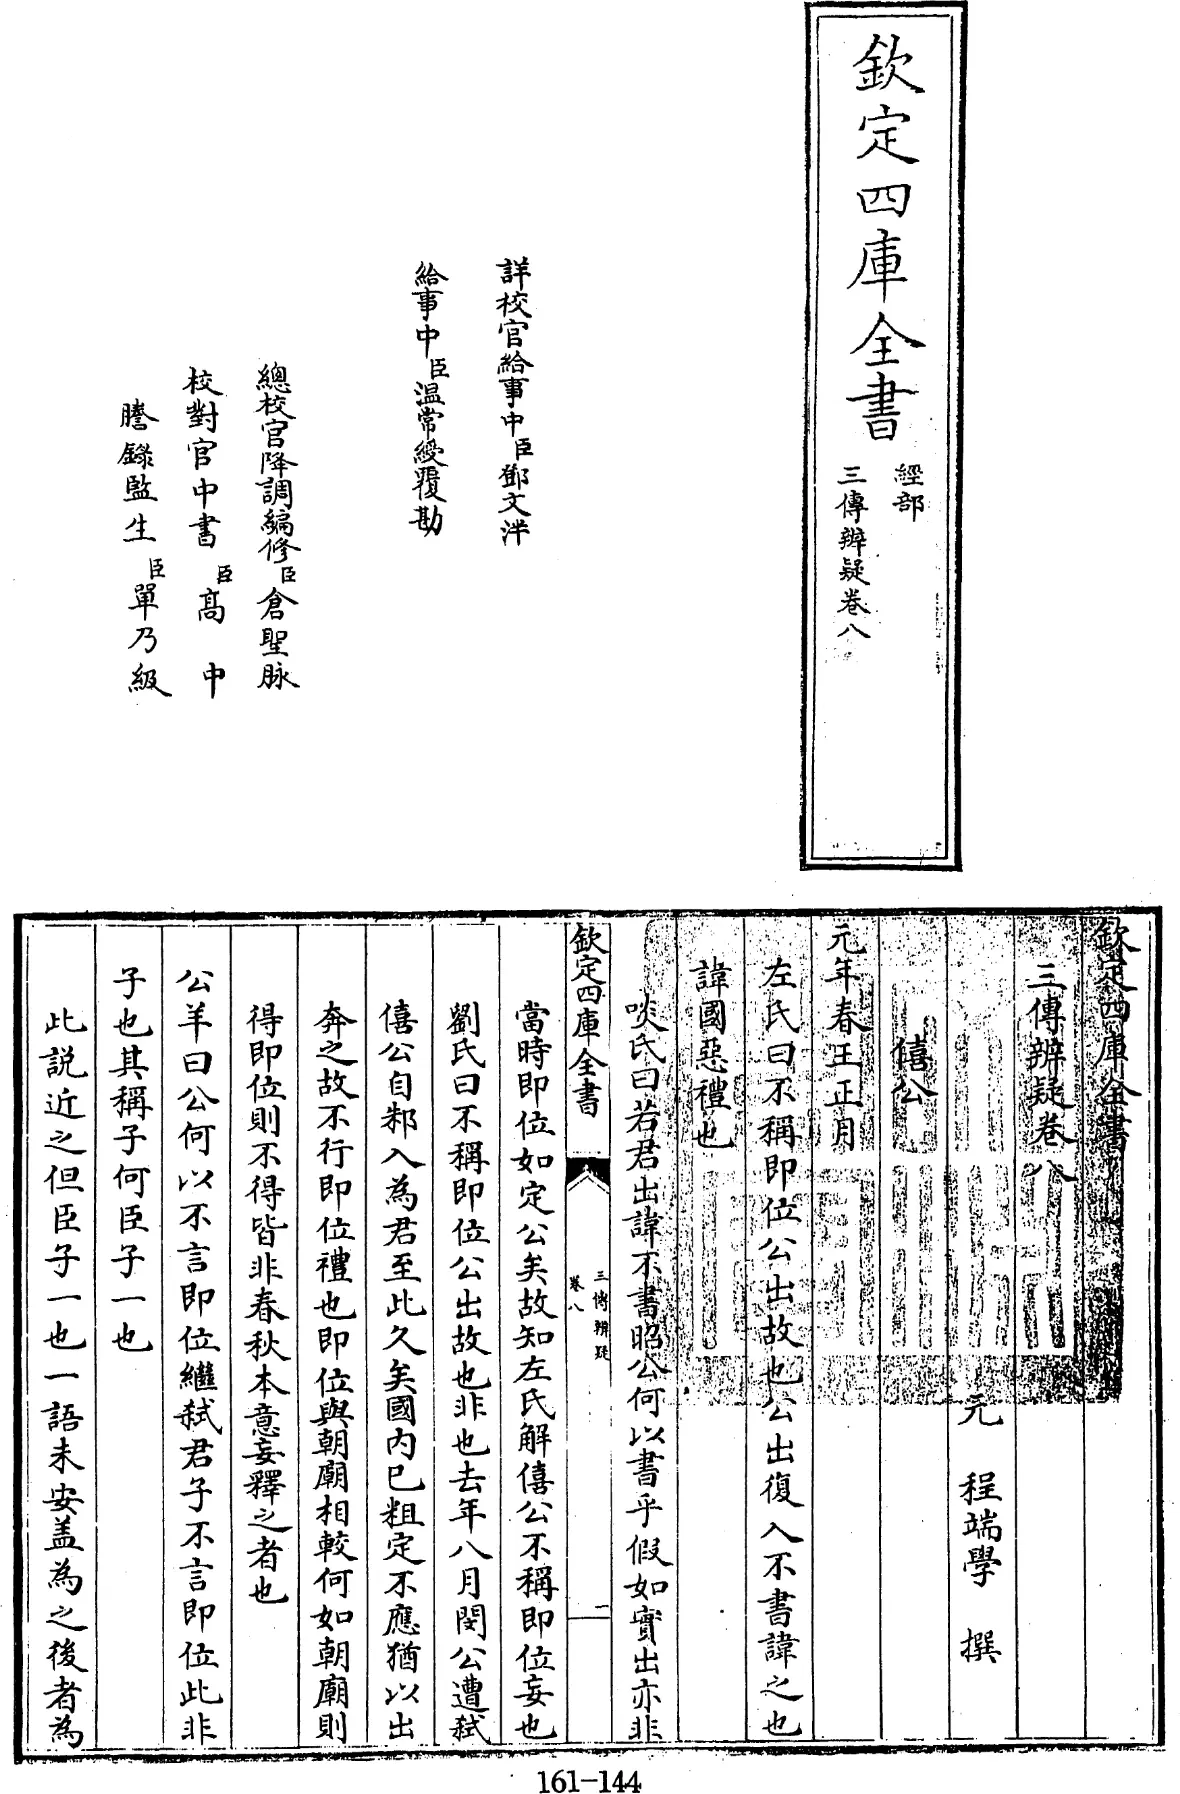 欽定四庫全書
經部
三傳辨疑卷八
詳校官給事中臣鄧文泮
給事中臣溫常綬覆勘
總校官降調編修臣倉聖脉
校對官中書臣高中
謄錄監生臣單乃級
欽定四庫全書
三傳辨疑卷八
元 程端學 撰
僖公
元年春王正月
左氏曰不稱即位公出故也公出復入不書諱之也
諱國惡禮也
啖氏曰若君出諱不書昭公何以書乎假如實出亦非
欽定四庫全書
三傳辨疑
卷八
一
當時即位如定公矣故知左氏解僖公不稱即位妄也
劉氏曰不稱即位公出故也非也去年八月閔公遭弑
僖公自邾入為君至此久矣國内已粗定不應猶以出
奔之故不行即位禮也即位與朝廟相較何如朝廟則
得即位則不得皆非春秋本意妄釋之者也
公羊曰公何以不言即位繼弑君子不言即位此非
子也其稱子何臣子一也
此說近之但臣子一也一語未安盖為之後者為
161-144